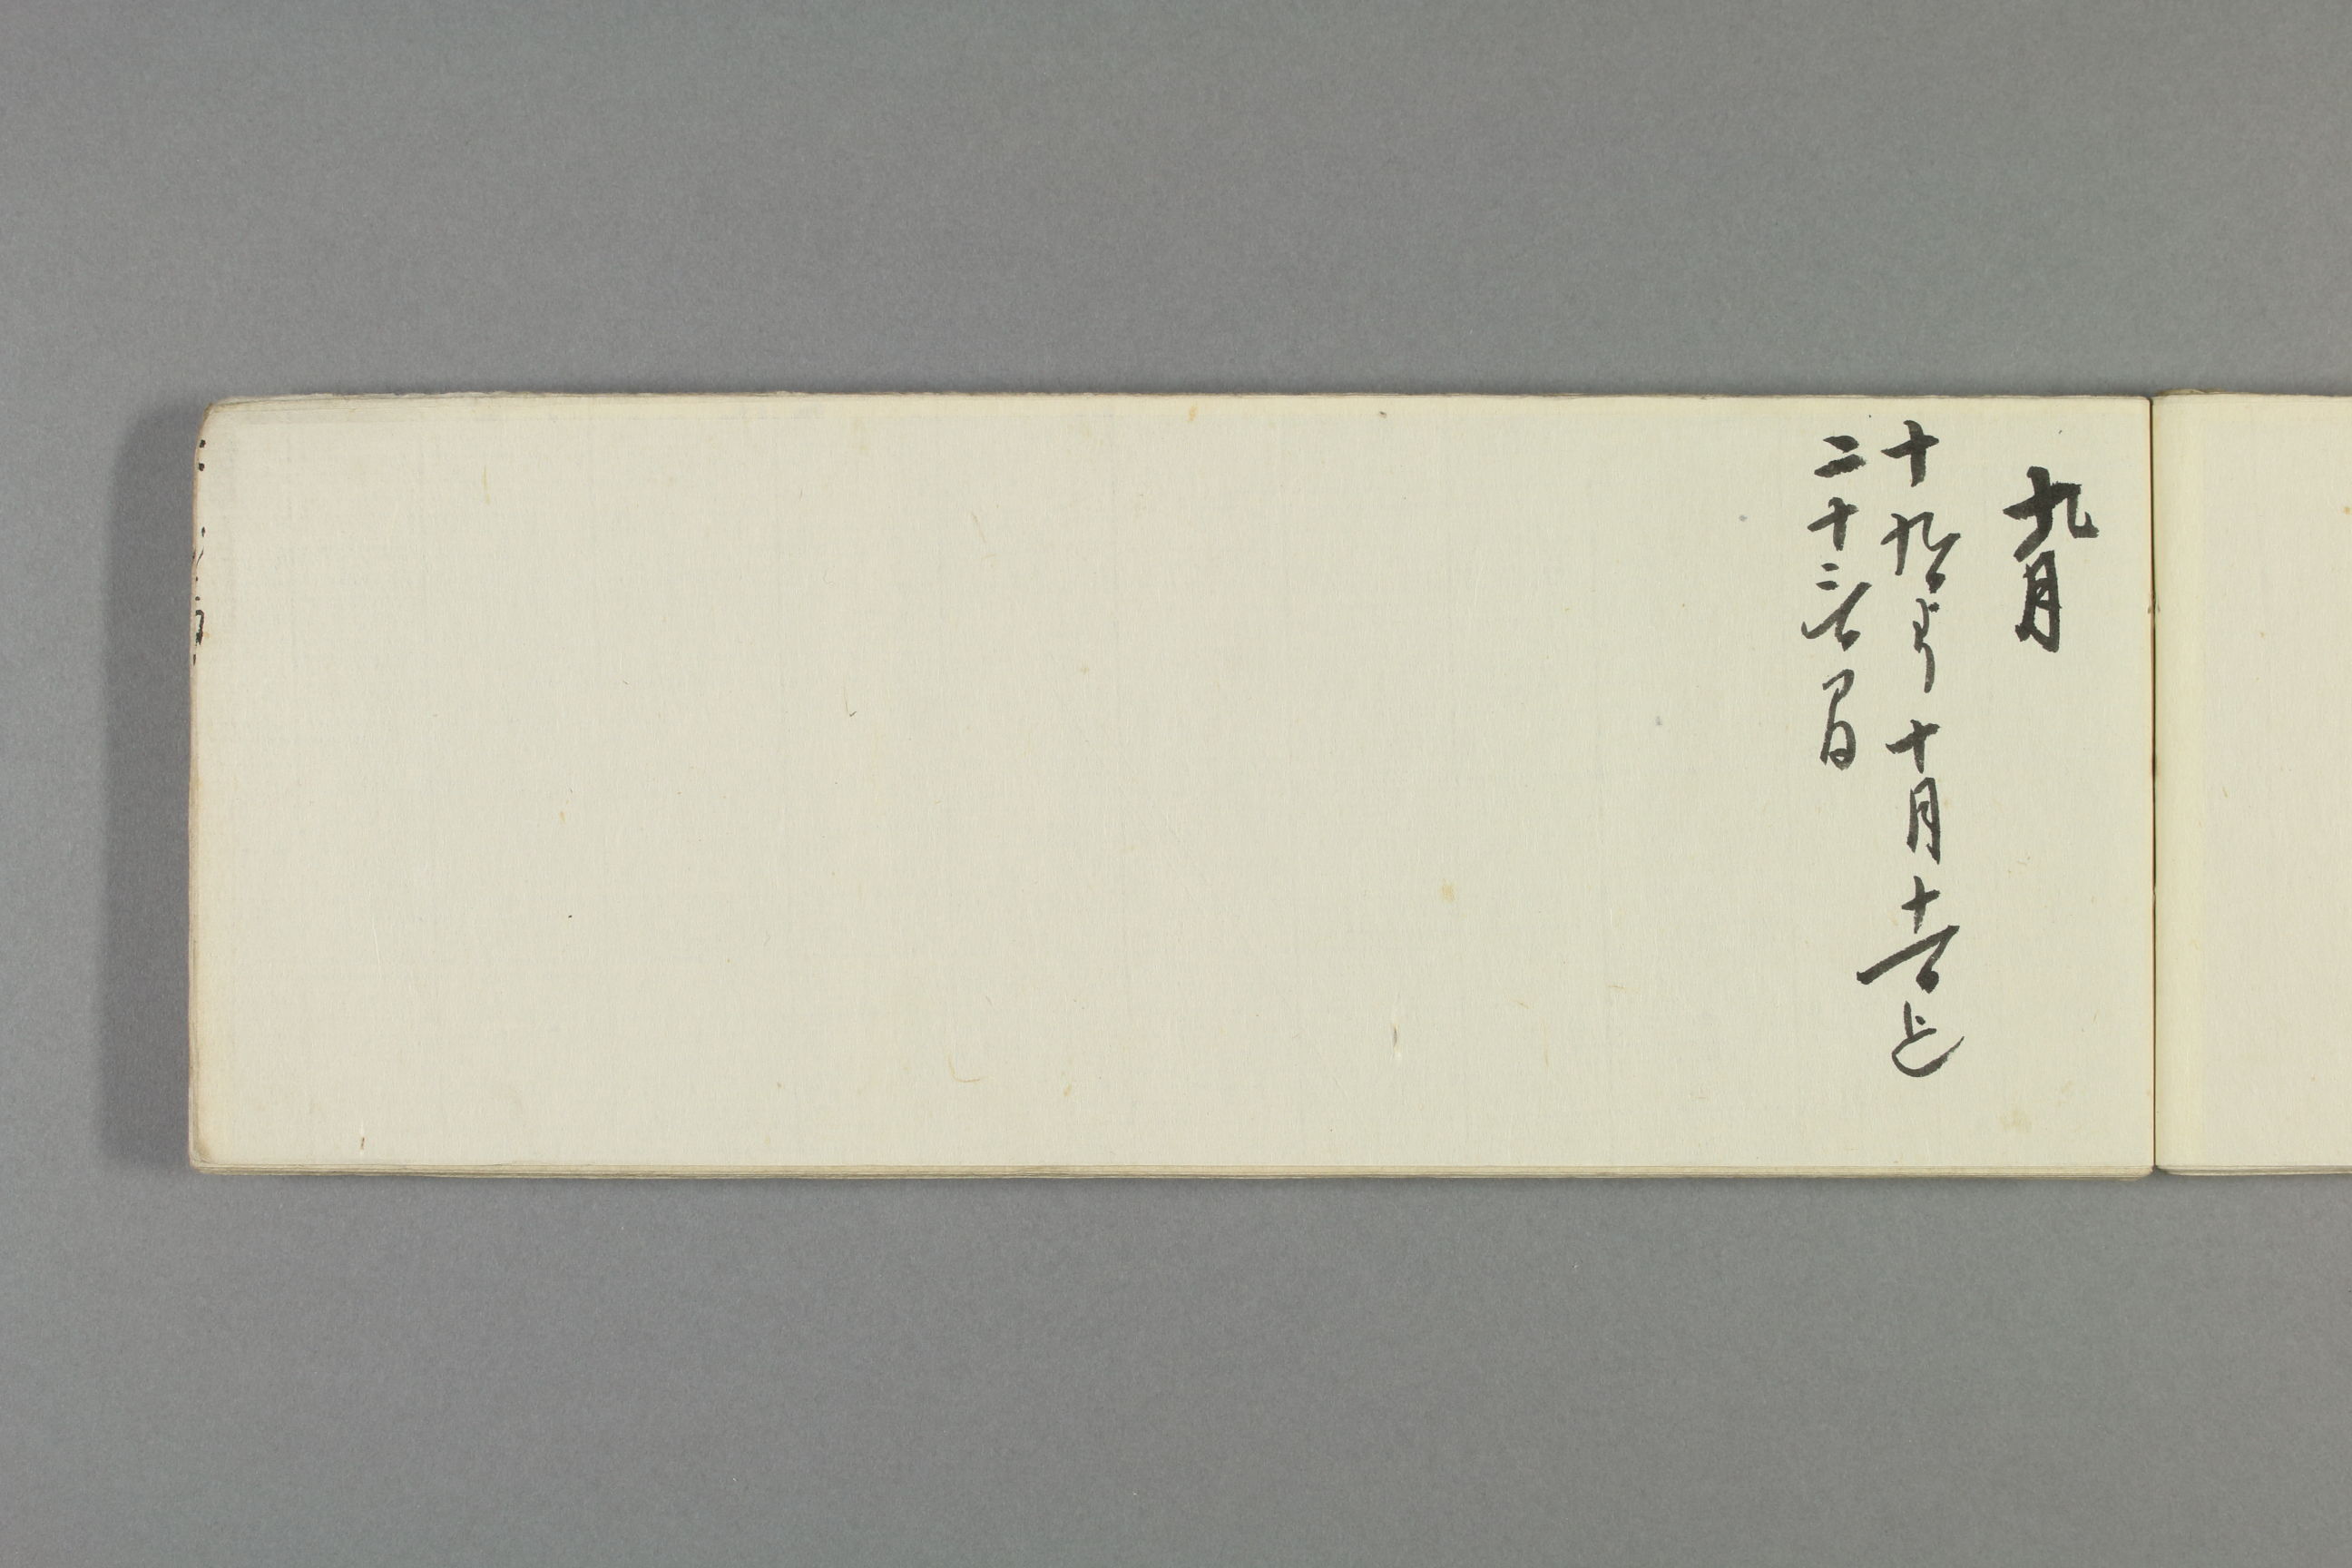 九月
十九日より十月十一日迄
二十三日間